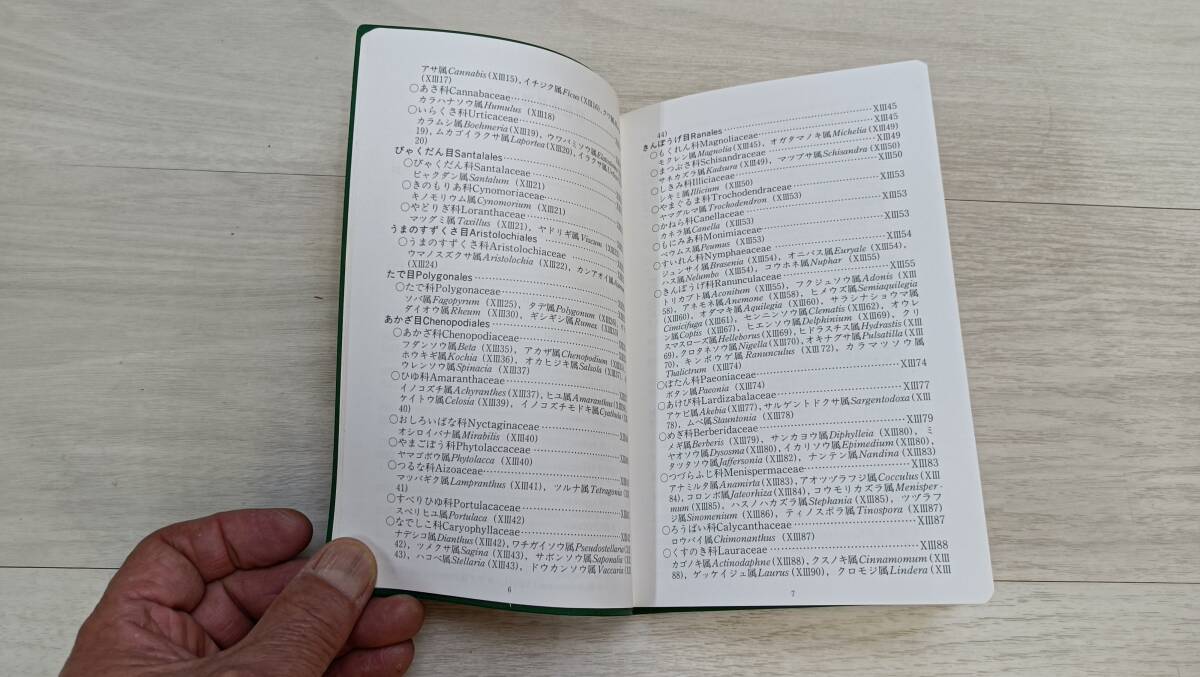 アサ属Cannabis(XⅢ15)，イチジク属Ficus(XⅢ16)，
(XⅢ17)
○あさ科Cannabaceae
カラハナソウ属Humulus (XⅢ18)
○いらくさ科Urticaceae
カラムシ属Boehmeria (XⅢ19)，ウワバミソウ属
19)，ムカゴイラクサ属Laportea (XⅢ20)，イラクサ属
20)
びゃくだん目Santalales
○びゃくだん科Santalaceae
ビャクダン属Santalum (XⅢ21)
○きのもりあ科Cynomoriaceae
キノモリウム属Cynomorium (XⅢ21)
○やどりぎ科Loranthaceae
マツグミ属Taxillus (XⅢ21)，ヤドリギ属Viscum
うまのすずくさ目Aristolochiales
○うまのすずくさ科Aristolochiaceae
ウマノスズクサ属Aristolochia (XⅢ22)，カンアオイ属
(XⅢ24)
たで目Polygonales
○たで科Polygonaceae
ソバ属Fagopyrum (XⅢ25)，タデ属Polygonum (XⅢ25)，
ダイオウ属Rheum (XⅢ30)，ギシギシ属Rumex (XⅢ33)
あかざ目Chenopodiales
○あかざ科Chenopodiaceae
フダンソウ属Beta (XⅢ35)，アカザ属Chenopodium
ホウキギ属Kochia (XⅢ36)，オカヒジキ属Salsola (XⅢ37)，
ウレンソウ属Spinacia (XⅢ37)
○ひゆ科Amaranthaceae
イノコズチ属Achyranthes (XⅢ37)，ヒユ属Amaranthus
ケイトウ属Celosia (XⅢ39)，イノコズチモドキ属Cyathula
40)
○おしろいばな科Nyctaginaceae
オシロイバナ属Mirabilis (XⅢ40)
○やまごぼう科Phytolaccaceae
ヤマゴボウ属Phytolacca (XⅢ40)
○つるな科Aizoaceae
マツバギク属Lampranthus (XⅢ41)，ツルナ属Tetragonia
41)
○すべりひゆ科Portulacaceae
スベリヒユ属Portulaca (XⅢ42)
○なでしこ科Caryophyllaceae
ナデシコ属Dianthus (XⅢ42)，ワチガイソウ属Pseudostellaria
42)，ツメクサ属Sagina (XⅢ43)，サボンソウ属Saponalia
43)，ハコベ属Stellaria (XⅢ43)，ドウカンソウ属Vaccaria
6
44)
きんぽうげ目Ranales XⅢ45
○もくれん科Magnoliaceae XⅢ45
モクレン属Magnolia (XⅢ45)，オガタマノキ属Michelia (XⅢ49)
○まつぶさ科Schisandraceae XⅢ49
サネカズラ属Kadsura (XⅢ49)，マツブサ属Schisandra (XⅢ50)
○しきみ科Illiciaceae XⅢ50
シキミ属Illicium (XⅢ50)
○やまぐるま科Trochodendraceae XⅢ53
ヤマグルマ属Trochodendron (XⅢ53)
○かねら科Canellaceae XⅢ53
カネラ属Canella (XⅢ53)
○もにみあ科Monimiaceae XⅢ53
ペウムス属Peumus (XⅢ53)
○すいれん科Nymphaeaceae XⅢ54
ジュンサイ属Brasenia (XⅢ54)，オニバス属Euryale (XⅢ54)，
ハス属Nelumbo (XⅢ54)，コウホネ属Nuphar (XⅢ55)
○きんぽうげ科Ranunculaceae XⅢ55
トリカブト属Aconitum (XⅢ55)，フクジュソウ属Adonis (XⅢ
58)，アネモネ属Anemone (XⅢ58)，ヒメウズ属Semiaquilegia
(XⅢ60)，オダマキ属Aquilegia (XⅢ60)，サラシナショウマ属
Cimicifuga (XⅢ61)，センニンソウ属Clematis (XⅢ62)，オウレ
ン属Coptis (XⅢ67)，ヒエンソウ属Delphinium (XⅢ69)，クリ
スマスローズ属Helleborus (XⅢ69)，ヒドラスチス属Hydrastis (XⅢ
69)，クロタネソウ属Nigella (XⅢ70)，オキナグサ属Pulsatilla (XⅢ
70)，キンポウゲ属Ranunculus (XⅢ72)，カラマツソウ属
Thalictrum (XⅢ74)
○ぼたん科Paeoniaceae XⅢ74
ボタン属Paeonia (XⅢ74)
○あけび科Lardizabalaceae XⅢ77
アケビ属Akebia (XⅢ77)，サルゲントドクサ属Sargentodoxa (XⅢ
78)，ムベ属Stauntonia (XⅢ78)
○めぎ科Berberidaceae XⅢ79
メギ属Berberis (XⅢ79)，サンカヨウ属Diphylleia (XⅢ80)，ミ
ヤオソウ属Dysosma (XⅢ80)，イカリソウ属Epimedium (XⅢ80)，
タツタソウ属Jaffersonia (XⅢ82)，ナンテン属Nandina (XⅢ83)
○つづらふじ科Menispermaceae XⅢ83
アナミルタ属Anamirta (XⅢ83)，アオツヅラフジ属Cocculus (XⅢ
84)，コロンボ属Jateorhiza (XⅢ84)，コウモリカズラ属Menisper-
mum (XⅢ85)，ハスノハカズラ属Stephania (XⅢ85)，ツヅラフ
ジ属Sinomenium (XⅢ86)，ティノスポラ属Tinospora (XⅢ87)
○ろうばい科Calycanthaceae XⅢ87
ロウバイ属Chimonanthus (XⅢ87)
○くすのき科Lauraceae XⅢ88
カゴノキ属Actinodaphne (XⅢ88)，クスノキ属Cinnamomum (XⅢ
88)，ゲッケイジュ属Laurus (XⅢ90)，クロモジ属Lindera (XⅢ
7